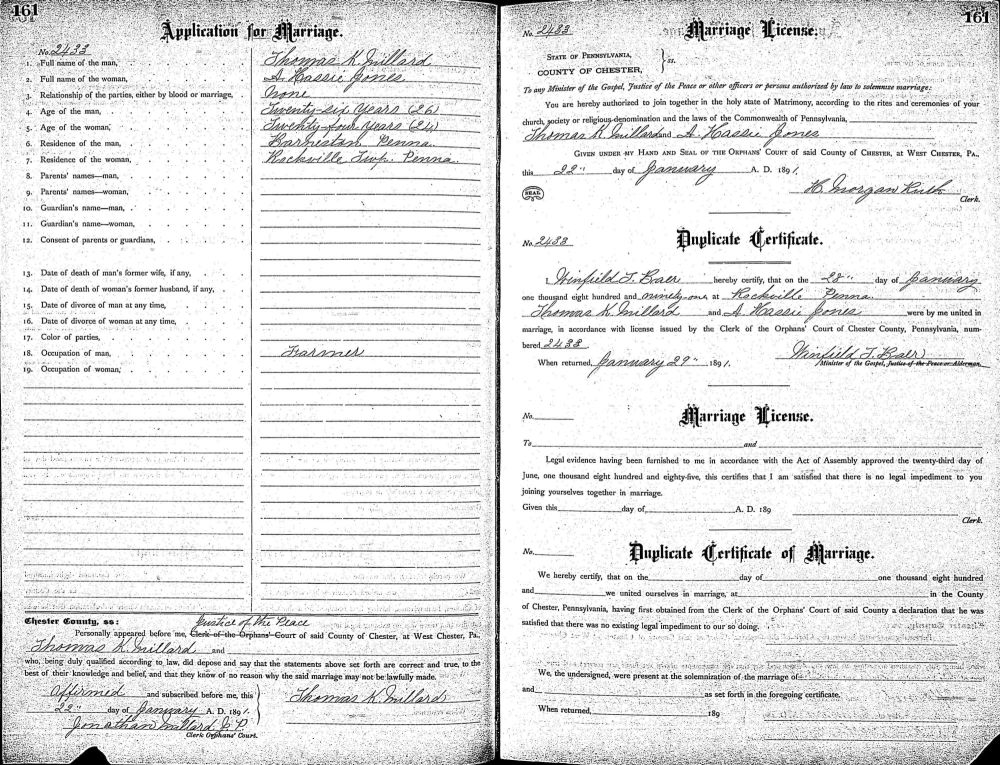 161
Application for Marriage.
No. 2433
1. Full name of the man, Thomas K. Millard
2. Full name of the woman, A. Hassie Jones
3. Relationship of the parties, either by blood or marriage, None
4. Age of the man, Twenty-six Years (26)
5. Age of the woman, Twenty-four Years (24)
6. Residence of the man, Barneston, Penna.
7. Residence of the woman, Rockville Twp. Penna.
8. Parents' names—man,
9. Parents' names—woman,
10. Guardian's name—man,
11. Guardian's name—woman,
12. Consent of parents or guardians,
13. Date of death of man's former wife, if any,
14. Date of death of woman's former husband, if any,
15. Date of divorce of man at any time,
16. Date of divorce of woman at any time,
17. Color of parties,
18. Occupation of man, Farmer
19. Occupation of woman,
Chester County, ss: Justice of the Peace
Personally appeared before me, Clerk of the Orphans' Court of said County of Chester, at West Chester, Pa.
Thomas K. Millard and
who, being duly qualified according to law, did depose and say that the statements above set forth are correct and true, to the
best of their knowledge and belief, and that they know of no reason why the said marriage may not be lawfully made.
Affirmed and subscribed before me, this
22" day of January A. D. 1891.
Thomas K. Millard
Jonathan Millard J. P.
Clerk Orphans' Court.
161
No. 2433
Marriage License.
STATE OF PENNSYLVANIA,
COUNTY OF CHESTER, } ss.
To any Minister of the Gospel, Justice of the Peace or other officers or persons authorized by law to solemnize marriage:
You are hereby authorized to join together in the holy state of Matrimony, according to the rites and ceremonies of your
church, society or religious denomination and the laws of the Commonwealth of Pennsylvania,
Thomas K. Millard and A. Hassie Jones
GIVEN UNDER MY HAND AND SEAL OF THE ORPHANS' COURT of said County of CHESTER, at WEST CHESTER, PA.,
this 22" day of January A. D. 1891.
SEAL
H. Morgan Ruth
Clerk.
No. 2433
Duplicate Certificate.
I, Winfield T. Baer hereby certify, that on the 28" day of January
one thousand eight hundred and ninety-one at Rockville Penna.
Thomas K. Millard and A. Hassie Jones were by me united in
marriage, in accordance with license issued by the Clerk of the Orphans' Court of Chester County, Pennsylvania, num-
bered 2433
When returned, January 29" 1891.
Winfield T. Baer
Minister of the Gospel, Justice of the Peace or Alderman.
No.
Marriage License.
To and
Legal evidence having been furnished to me in accordance with the Act of Assembly approved the twenty-third day of
June, one thousand eight hundred and eighty-five, this certifies that I am satisfied that there is no legal impediment to you
joining yourselves together in marriage.
Given this day of A. D. 189
Clerk.
No.
Duplicate Certificate of Marriage.
We hereby certify, that on the day of one thousand eight hundred
and we united ourselves in marriage, at in the County
of Chester, Pennsylvania, having first obtained from the Clerk of the Orphans' Court of said County a declaration that he was
satisfied that there was no existing legal impediment to our so doing.
We, the undersigned, were present at the solemnization of the marriage of
and as set forth in the foregoing certificate.
When returned, 189